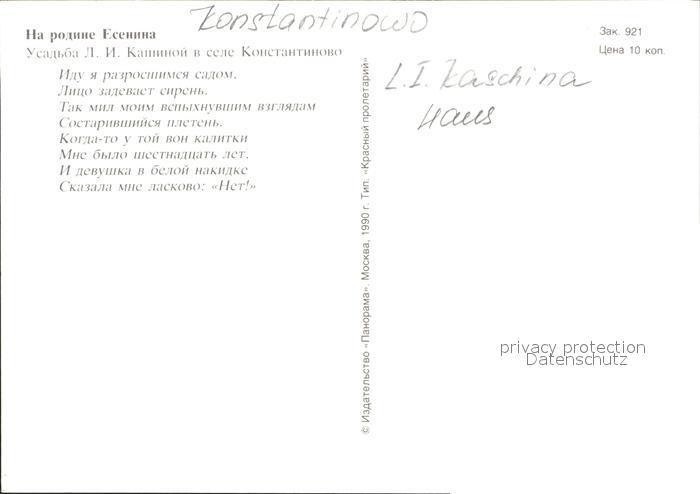 Konstantinowo
На родине Есенина
Усадьба Л. И. Кашиной в селе Константиново
Иду я разросшимся садом,
Лицо задевает сирень.
Так мил моим вспыхнувшим взглядам
Состарившийся плетень.
Когда-то у той вон калитки
Мне было шестнадцать лет,
И девушка в белой накидке
Сказала мне ласково: «Нет!»
© Издательство «Панорама». Москва. 1990 г. Тип. «Красный пролетарий»
Зак. 921
Цена 10 коп.
L.I. Kaschina
Haus
privacy protection
Datenschutz